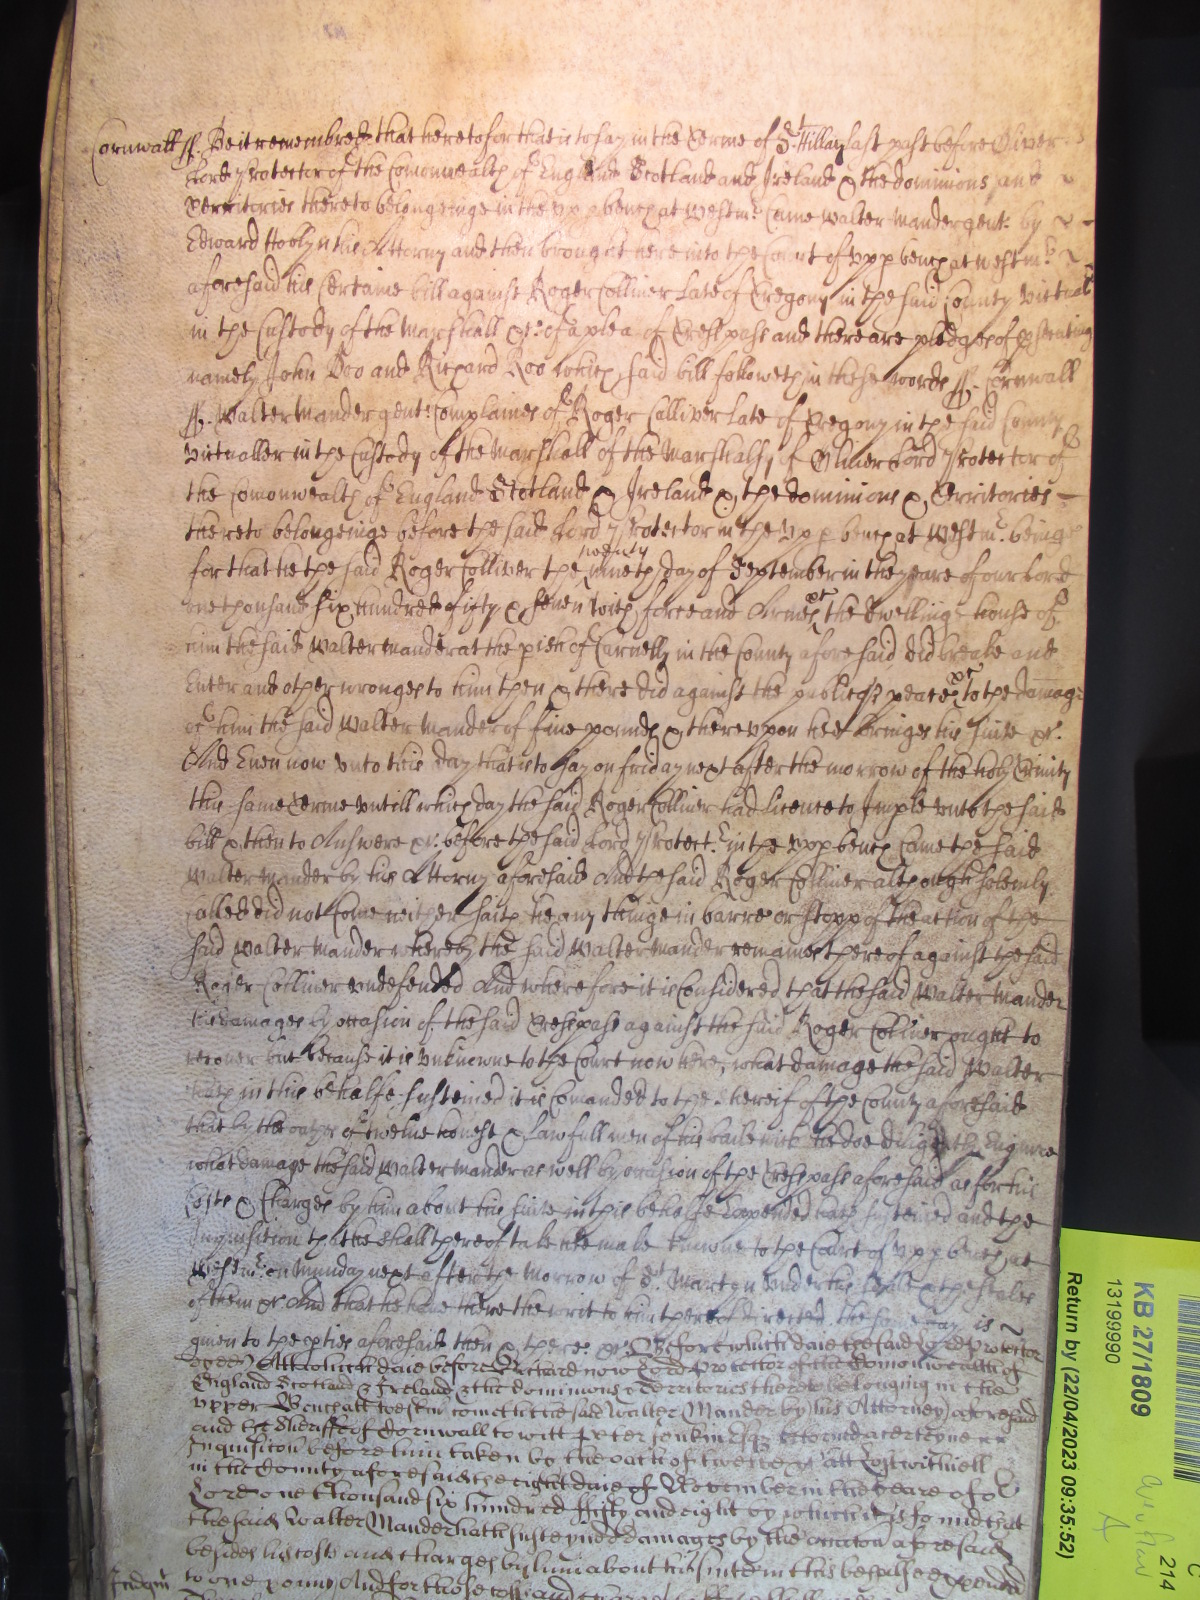 Cornwall ss. Be it remembred that heretofor that is to say in the Terme of St. Hillary last past before Oliver
Lord Protector of the Comonwealth of England Scotland and Ireland & the dominions and
Territories thereto belongeinge in the upp bench at Westmr. Came Walter Mander gent. by
Edward Hoblyn his Attorny and then brought here into the Court of upp bench at westmr.
aforesaid his Certaine bill against Roger Colliver Late of Tregony in the said County victual
in the Custody of the Marshall &c. of a plea of Trespass and there are pledges of prosecuting
namely John Doo and Richard Roo which said bill followeth in these words ss. Cornwall
ss. Walter Mander gent. Complaines of Roger Colliver Late of Tregony in the said County
victualler in the Custody of the Marshall of the Marshalsy of Oliver Lord Protector of
the Comonwealth of England Scotland & Ireland & the dominions & Territories
thereto belongeinge before the said Lord Protector in the upp bench at Westmr. being
for that he the said Roger Colliver the day of September in the yeare of our Lord
one thousand six hundred fifty & seven with force and Armes &c the dwelling house of
him the said Walter Mander at the pish of in the County aforesaid did breake and
Enter and other wronges to him then & there did against the publique peace &c to the damage
of him the said Walter Mander of five pounds & thereupon hee bringes his suite &c.
And Even now unto this day that is to say on friday next after the morrow of the holy Trinity
this same Terme untill which day the said Roger Colliver had licence to Imple unto the said
bill & then to Answere &c. before the said Lord Protectr. in the upp bench Came the said
Walter Mander by his Attorny aforesaid And the said Roger Colliver although solemly
Called did not Come neither saith he any thinge in barre or stopp of the action of the
said Walter Mander whereby the said Walter Mander remaines thereof against the said
Roger Colliver undefended And wherefore it is Considered that the said Walter Mander
his damages by occasion of the said Trespass against the said Roger Colliver ought to
recover but because it is unknowne to the Court now here, what damage the said Walter
hath in this behalfe susteined it is Comanded to the Shereif of the County aforesaid
that by the oathes of twelve honest & lawfull men of his bailiwick he doe diligently Enquire
what damage the said Walter Mander as well by occasion of the Trespass aforesaid as for his
Costs & Charges by him about his suite in this behalfe Expended hath susteined and the
Inquisition that he shall thereof take he make knowne to the Court of upp bench at
Westmr. on Munday next after the Morrow of St. Martyn under his seale & the seales
of them &c. And that he have there the writ to him thereof directed. the same day is
given to the pties aforesaid then & there. &c. Before which daie the said Lord Protector
dyed Att which daie before Richard now Lord Protector of the Comonwealth of
England Scotland & Ireland & the dominions & Territories thereto belonging in the
upper Bench att Westmr cometh the said Walter Mander by his Attorney aforesaid
and the Sheriffe of Cornwall to witt Peter Jenkin Esqr returned a certeyne
Inquisicon before him taken by the oath of twelve &c att Lostwithiell
in the County aforesaid the eight daie of November in the yeare of or
Lord one thousand six hundred fifty and eight by which it is found that
the said Walter Mander hath susteyned damages by the occacon aforesaid
besides his costs and charges by him about his suite in this behalfe expended
Judgmt to one penny And for those costs and
KB 27/1809
13199990
Return by (22/04/2023 09:35:52)
214
A